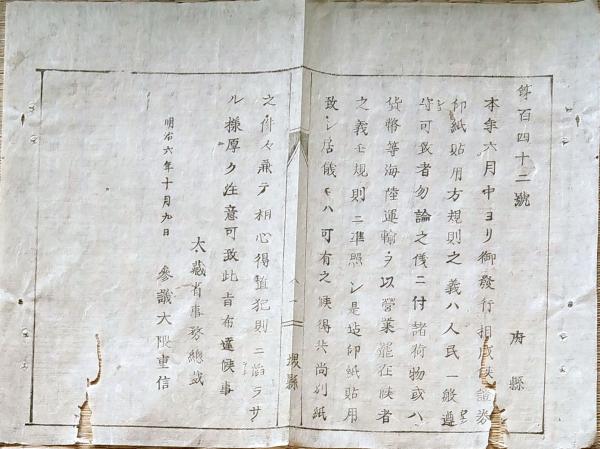 第百四十二號
府縣
本年六月中ヨリ御發行相成候證券
印紙貼用方規則之義ハ人民一般遵
守可致者勿論之儀ニ付諸荷物或ハ
貨幣等海陸運輸ヲ以營業罷在候者
之義モ規則ニ準照シ是迠印紙貼用
致シ居儀モハ可有之候得共尚別紙
之件々兼テ相心得置犯則ニ陥ラサ
ル様厚ク注意可致此旨布達候事
明治六年十月九日
大藏省事務總裁
參議大隈重信
堺縣